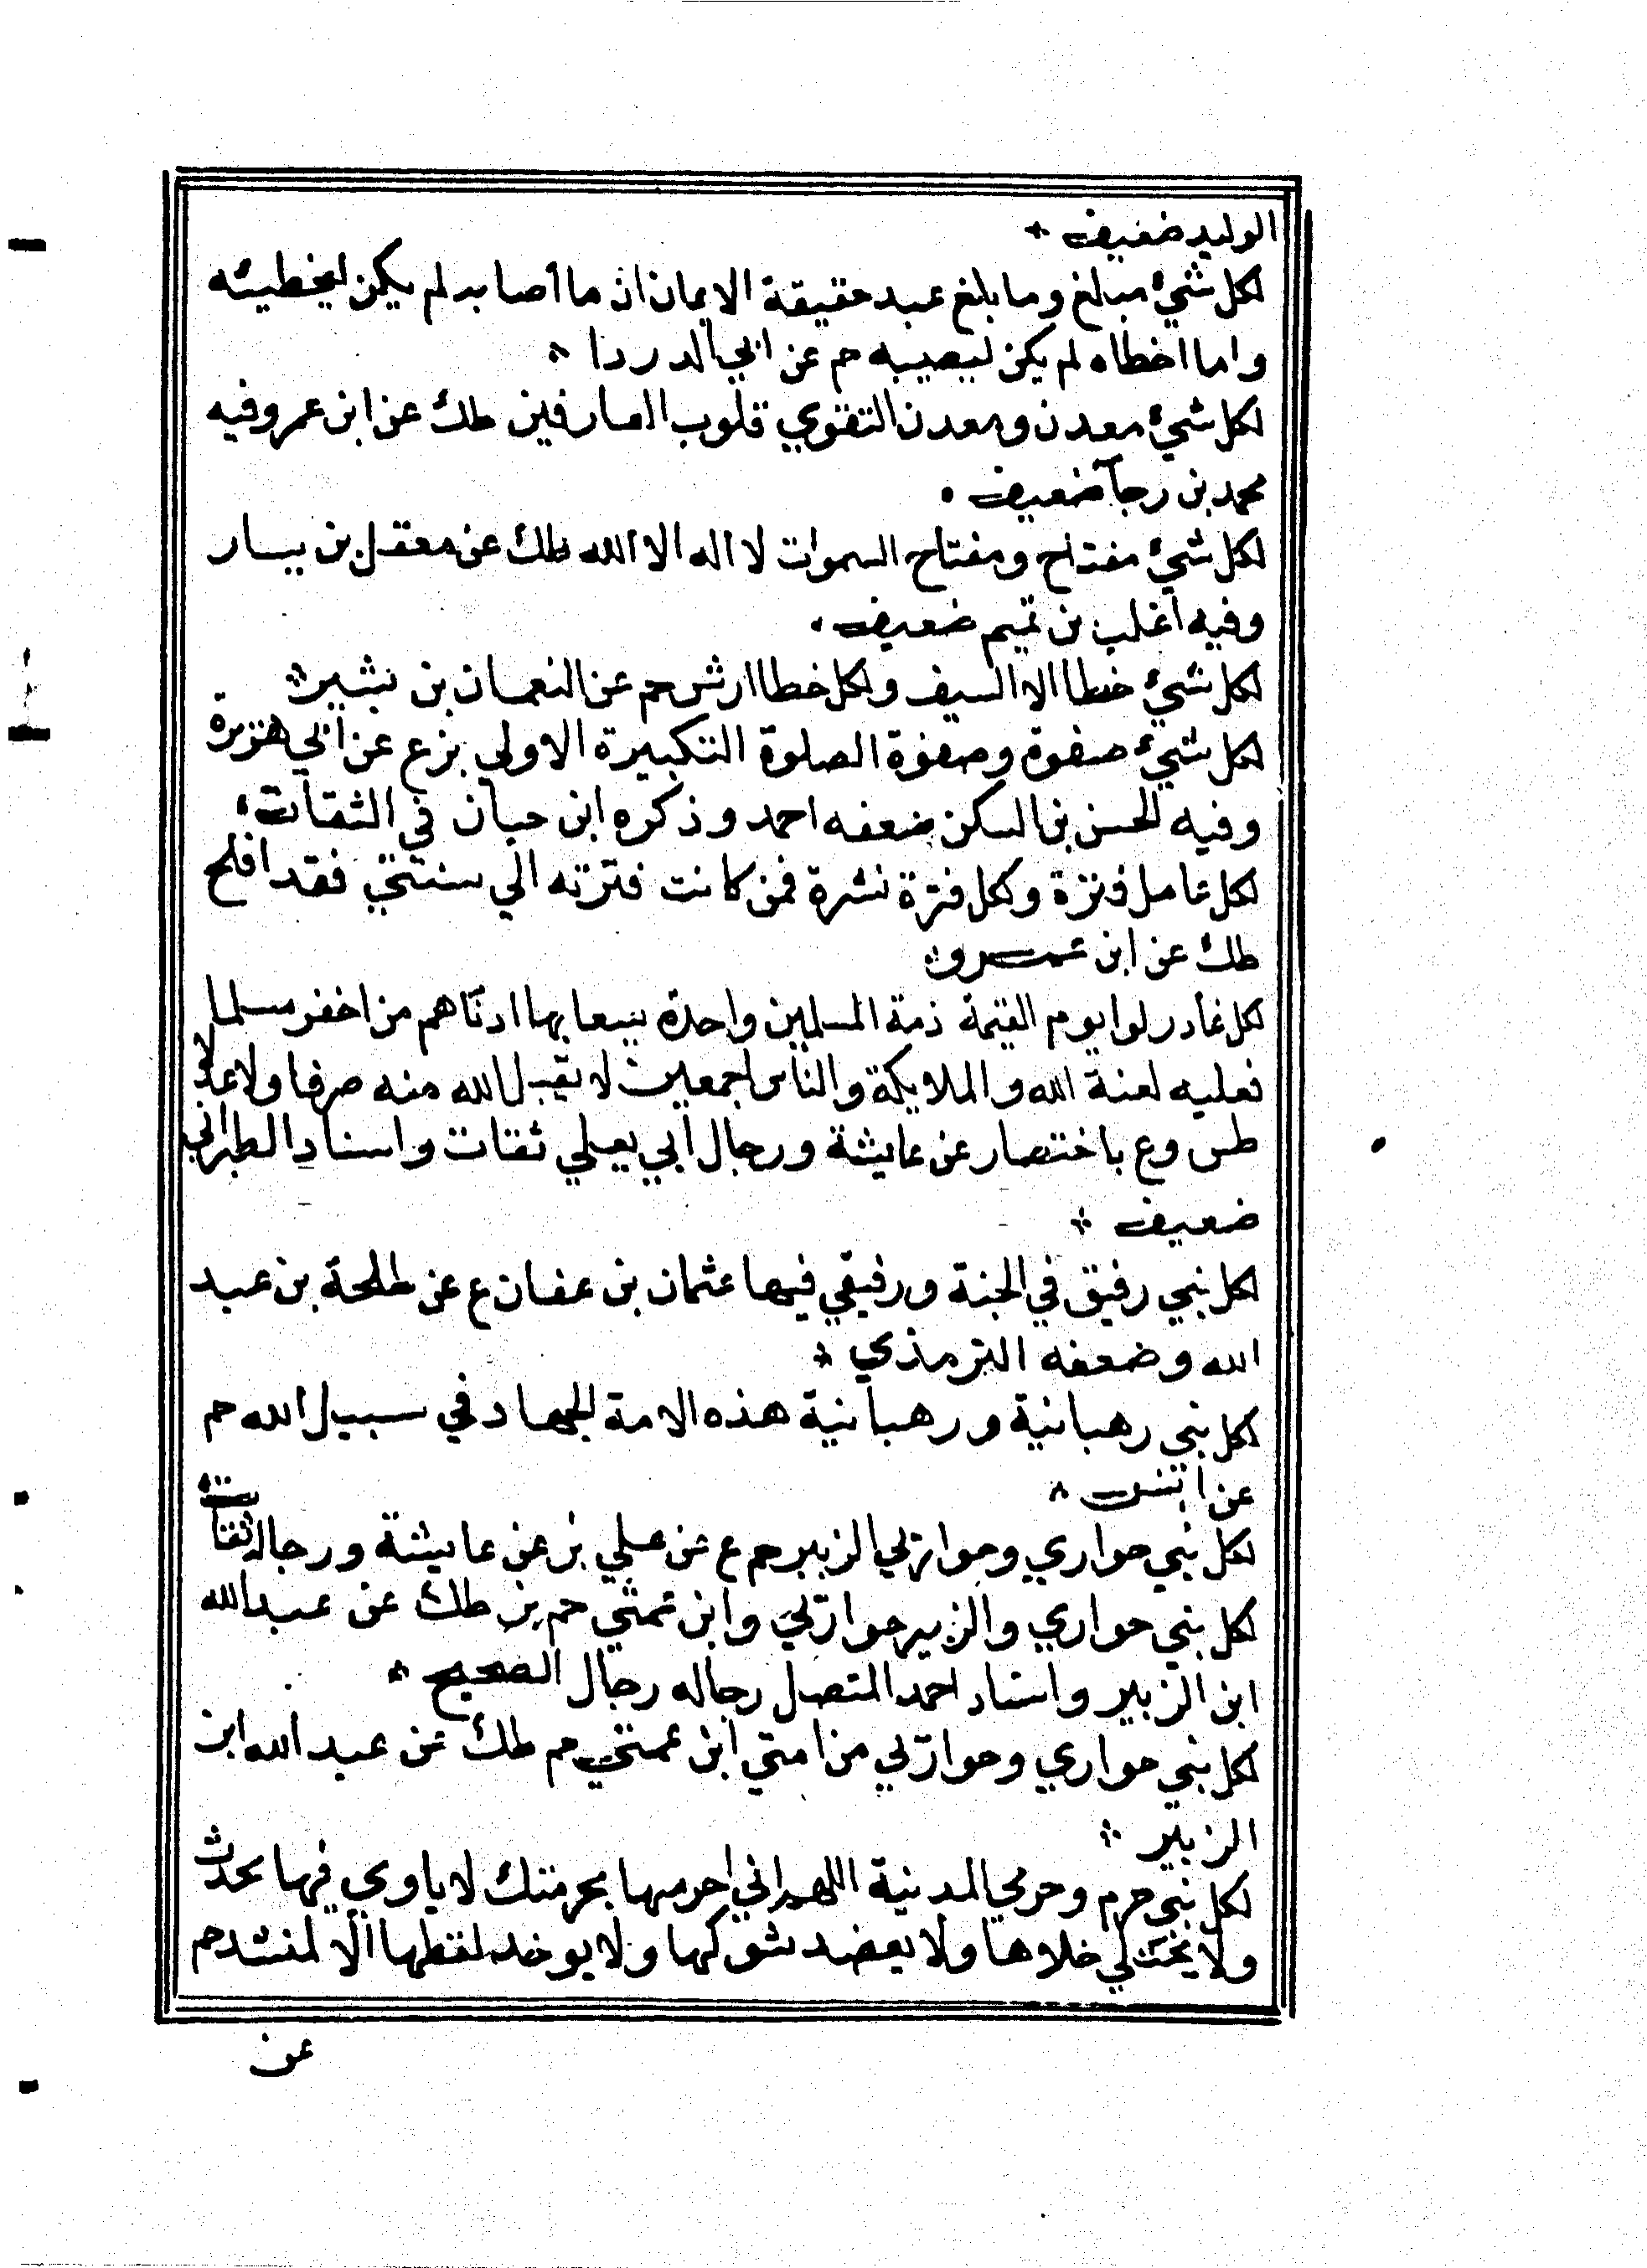 الوليد ضعيف
لكل شيء مبلغ وما بلغ عبد حقيقة الايمان ان ما أصابه لم يكن ليخطيئه
واما اخطاه لم يكن ليصيبه حم عن ابي الدردا
لكل شيء معدن ومعدن التقوي قلوب العارفين طك عن ابن عمر وفيه
محمد بن رجآ ضعيف
لكل شيء مفتاح ومفتاح السموات لا اله الا الله طك عن معقل بن يسار
وفيه اغلب بن تميم ضعيف
لكل شيء خطا الا السيف ولكل خطا ارش حم عن النعمان بن بشير
لكل شيء صفوة وصفوة الصلوة التكبيرة الاولي بزع عن ابي هريرة
وفيه الحسن بن السكن ضعفه احمد وذكره ابن حبان في الثقات
لكل عامل فترة ولكل فترة نشرة فمن كانت فترته الي سنتي فقد افلح
طك عن ابن عمرو
لكل غادر لوا يوم القيمة ذمة المسلمين واحدة يسعا بها ادناهم من اخفر مسلما
فعليه لعنة الله والملايكة والناس اجمعين لا يقبل الله منه صرفا ولا عدلا
طس وع باختصار عن عايشة ورجال أبي يعلي ثقات واسناد الطبراني
ضعيف
لكل نبي رفيق في الجنة ورفيقي فيها عثمان بن عفان ع عن طلحة بن عبيد
الله وضعفه الترمذي
لكل نبي رهبانية ورهبانية هذه الامة الجهاد في سبيل الله حم
عن انس
لكل نبي حواري وحواري الزبير حم ع عن علي بز عن عايشة ورجاله ثقات
لكل نبي حواري والزبير حواري وابن عمتي حم بز طك عن عبد الله
ابن الزبير واسناد احمد المتصل رجاله رجال الصحيح
لكل نبي حواري وحواري من امتي ابن عمتي حم طك عن عبد الله ابن
الزبير
لكل نبي حرم وحرمي المدينة اللهم اني احرمها بحرمتك لا ياوي فيها محدث
ولا يختلي خلاها ولا يعضد شوكها ولا يوخد لقطها الا لمنشد حم
عن